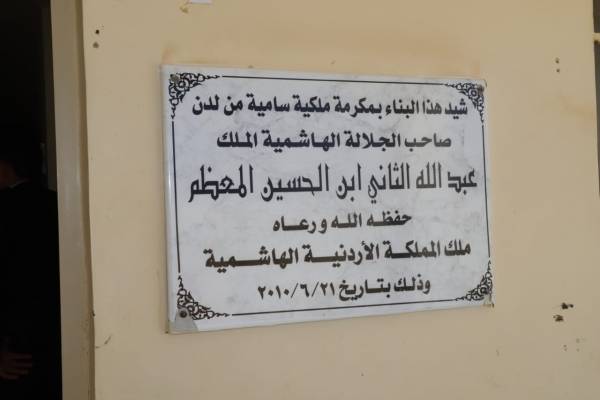 شيد هذا البناء بمكرمة ملكية سامية من لدن
صاحب الجلالة الهاشمية الملك
عبد الله الثاني ابن الحسين المعظم
حفظه الله ورعاه
ملك المملكة الأردنية الهاشمية
وذلك بتاريخ ٢٠١٠/٦/٢١